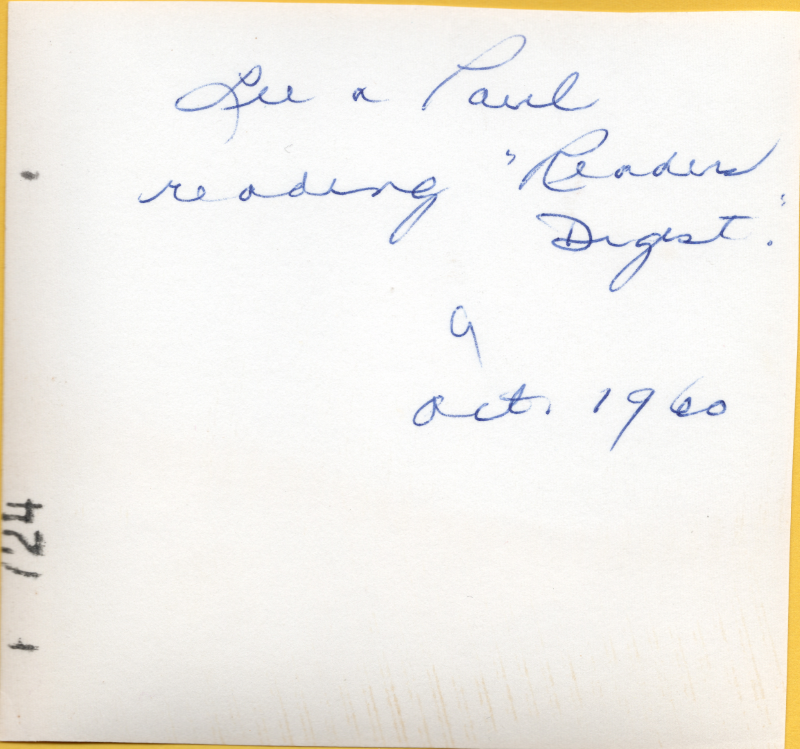 Lee & Paul
reading "Readers
Digest."
9
Oct. 1960
724